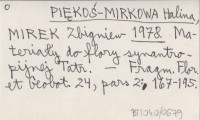 PIĘKOŚ-MIRKOWA Halina,
MIREK Zbigniew 1978. Ma-
teriały do flory synantro-
pijnej Tatr. — Fragm. Flor.
et Geobot. 24, pars 2: 167-195.